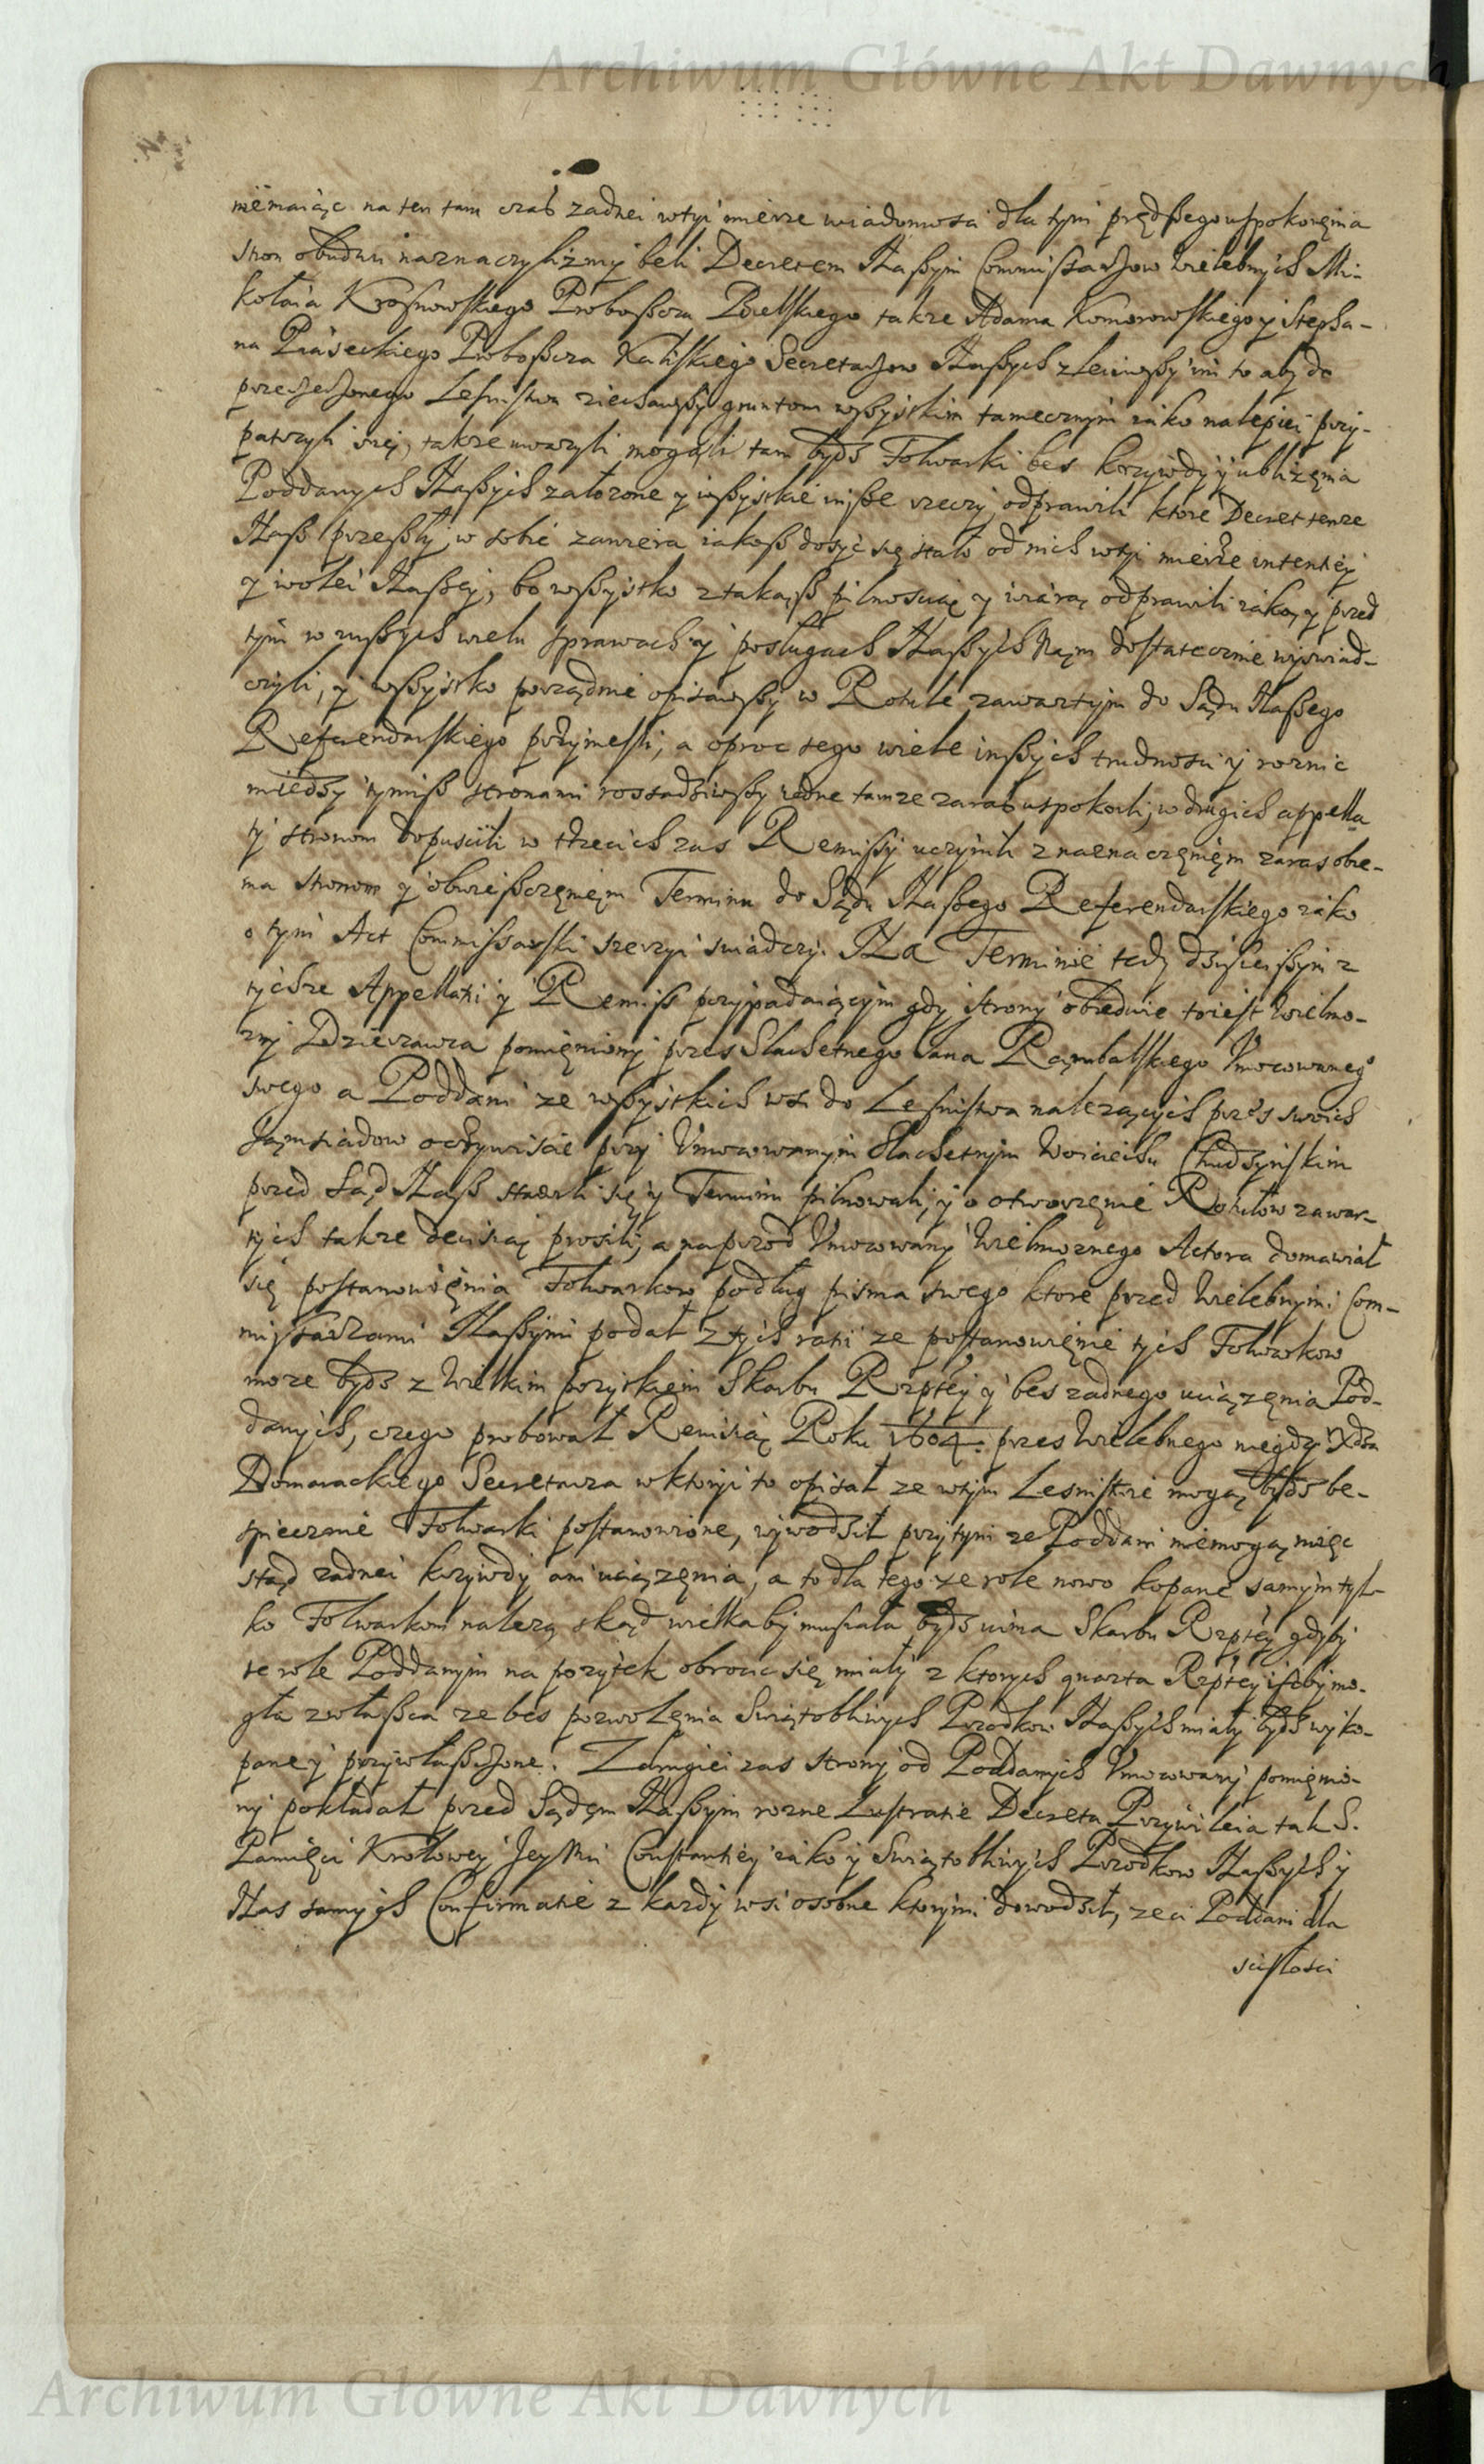 Archiwum Główne Akt Dawnych
niemaiąc na ten tam czas zadnei wtyi mierze wiadomosci dla tym prędßego uspokoięnia
stron obudwu naznaczylizmy beli Decretem Naßym Commissarzow Wielebnych Mi-
kołaia Krosnowskiego Proboßcza Bielskiego takze Adama Komorowskiego y Stepha-
na Piaseckiego Proboßcza Kaliskiego Secretarzow Naßych zleciwßy im to aby do
przerzeczonego Lesnistwa ziechawßy gruntom wßystkim tamecznym iako nalepiei przy-
patrzyli się, takze uwazyli mogąli tam bydz Folwarki bes krzywdy y ubliżęnia
Poddanych Naßych załozone y wßystkie inße rzeczy odprawili ktore Decret tenze
Naß przeßły w sobie zawiera iakoß dosyc się stało od nich wtyi mierze intentiey
y wolei Naßey, bo wßystko z takąß pilnoscią y wiarą odprawili iako y przed
tym w inßych wielu sprawach y posługach Naßych Nąm dostatecznie wyswiad-
czyli, y wßystko porządnie opisawßy w Rotule zawartym do Sądu Naßego
Referendarskiego przyniesli, a oprocz tego wiele inßych trudnosci y roznic
miedzy tymiß stronami rossadziwßy iedne tamze zaras uspokoili, w drugich appella
ty stronom dopuscili w trzecich zas Remissy uczynili z naznaczęnięm zaras obie-
ma stronom y obwießczęnięm Terminu do Sądu Naßego Referendarskiego iako
o tym Act Commissarski szerzyi swiadczy. Na Terminie tedy dzisieißym z
tychze Appellatii y Remiss przypadaiącym gdy strony obiedwie toiest Wielmo-
zny Dzierzawca pomięniony przes Slachetnego Jana Rąmbalskiego Umocowanego
swego a Poddani ze wßystkich wsi do Lesnistwa nalezących przes swoich
Sąmsiadow oczywiscie przy Umocowanym Slachetnym Woiciechu Chudzynskim
przed Sąd Naß stawili się y Terminu pilnowali, y o otworzęnie Rotułow zawar-
tych takze decisią prosili, a naprzod Umocowany Wielmoznego Actora domawiał
się postanowięnia Folwarkow podług pisma swego ktore przed Wielebnymi Com-
missarzami Naßymi podał z tych ratii ze postanowięnie tych Folwarkow
moze bydz z Wielkim pozytkięm Skarbu Rzptey y bes zadnego uciązęnia Pod-
danych, czego probował Remissią Roku 1604. przes Wielebnego niegdy Xdza
Domarackiego Secretarza wktoryi to opisał ze wtym Lesnistwie mogą bydz be-
spiecznie Folwarki postanowione, wywodził przytym ze Poddani niemogą miec
stąd zadnei krzywdy ani uciązęnia, a to dla tego ze role nowo kopane samym tyl-
ko Folwarkom nalezą skąd wielka by musiała bydz uima Skarbu Rzptey gdyby
te role Poddanym na pozytek obrocic się miały z ktorych quarta Rzptey iscby mo-
gła zwłaßcza ze bes pozwolęnia Swiątobliwych Przodkow Naßych miały bydz wyko-
pane y przywłaßczone. Z drugiei zas strony od Poddanych Umocowany pomięnio-
ny pokładał przed Sądęm Naßym rozne Lustratie Decreta Przywileia tak S.
Pamięci Krolowey Jey Mci Constantiey iako y Swiątobliwych Przodkow Naßych y
Nas samych Confirmatie z kazdy wsi osobne ktorymi dowodził, ze ci Poddani dla
scisłosci
Archiwum Główne Akt Dawnych